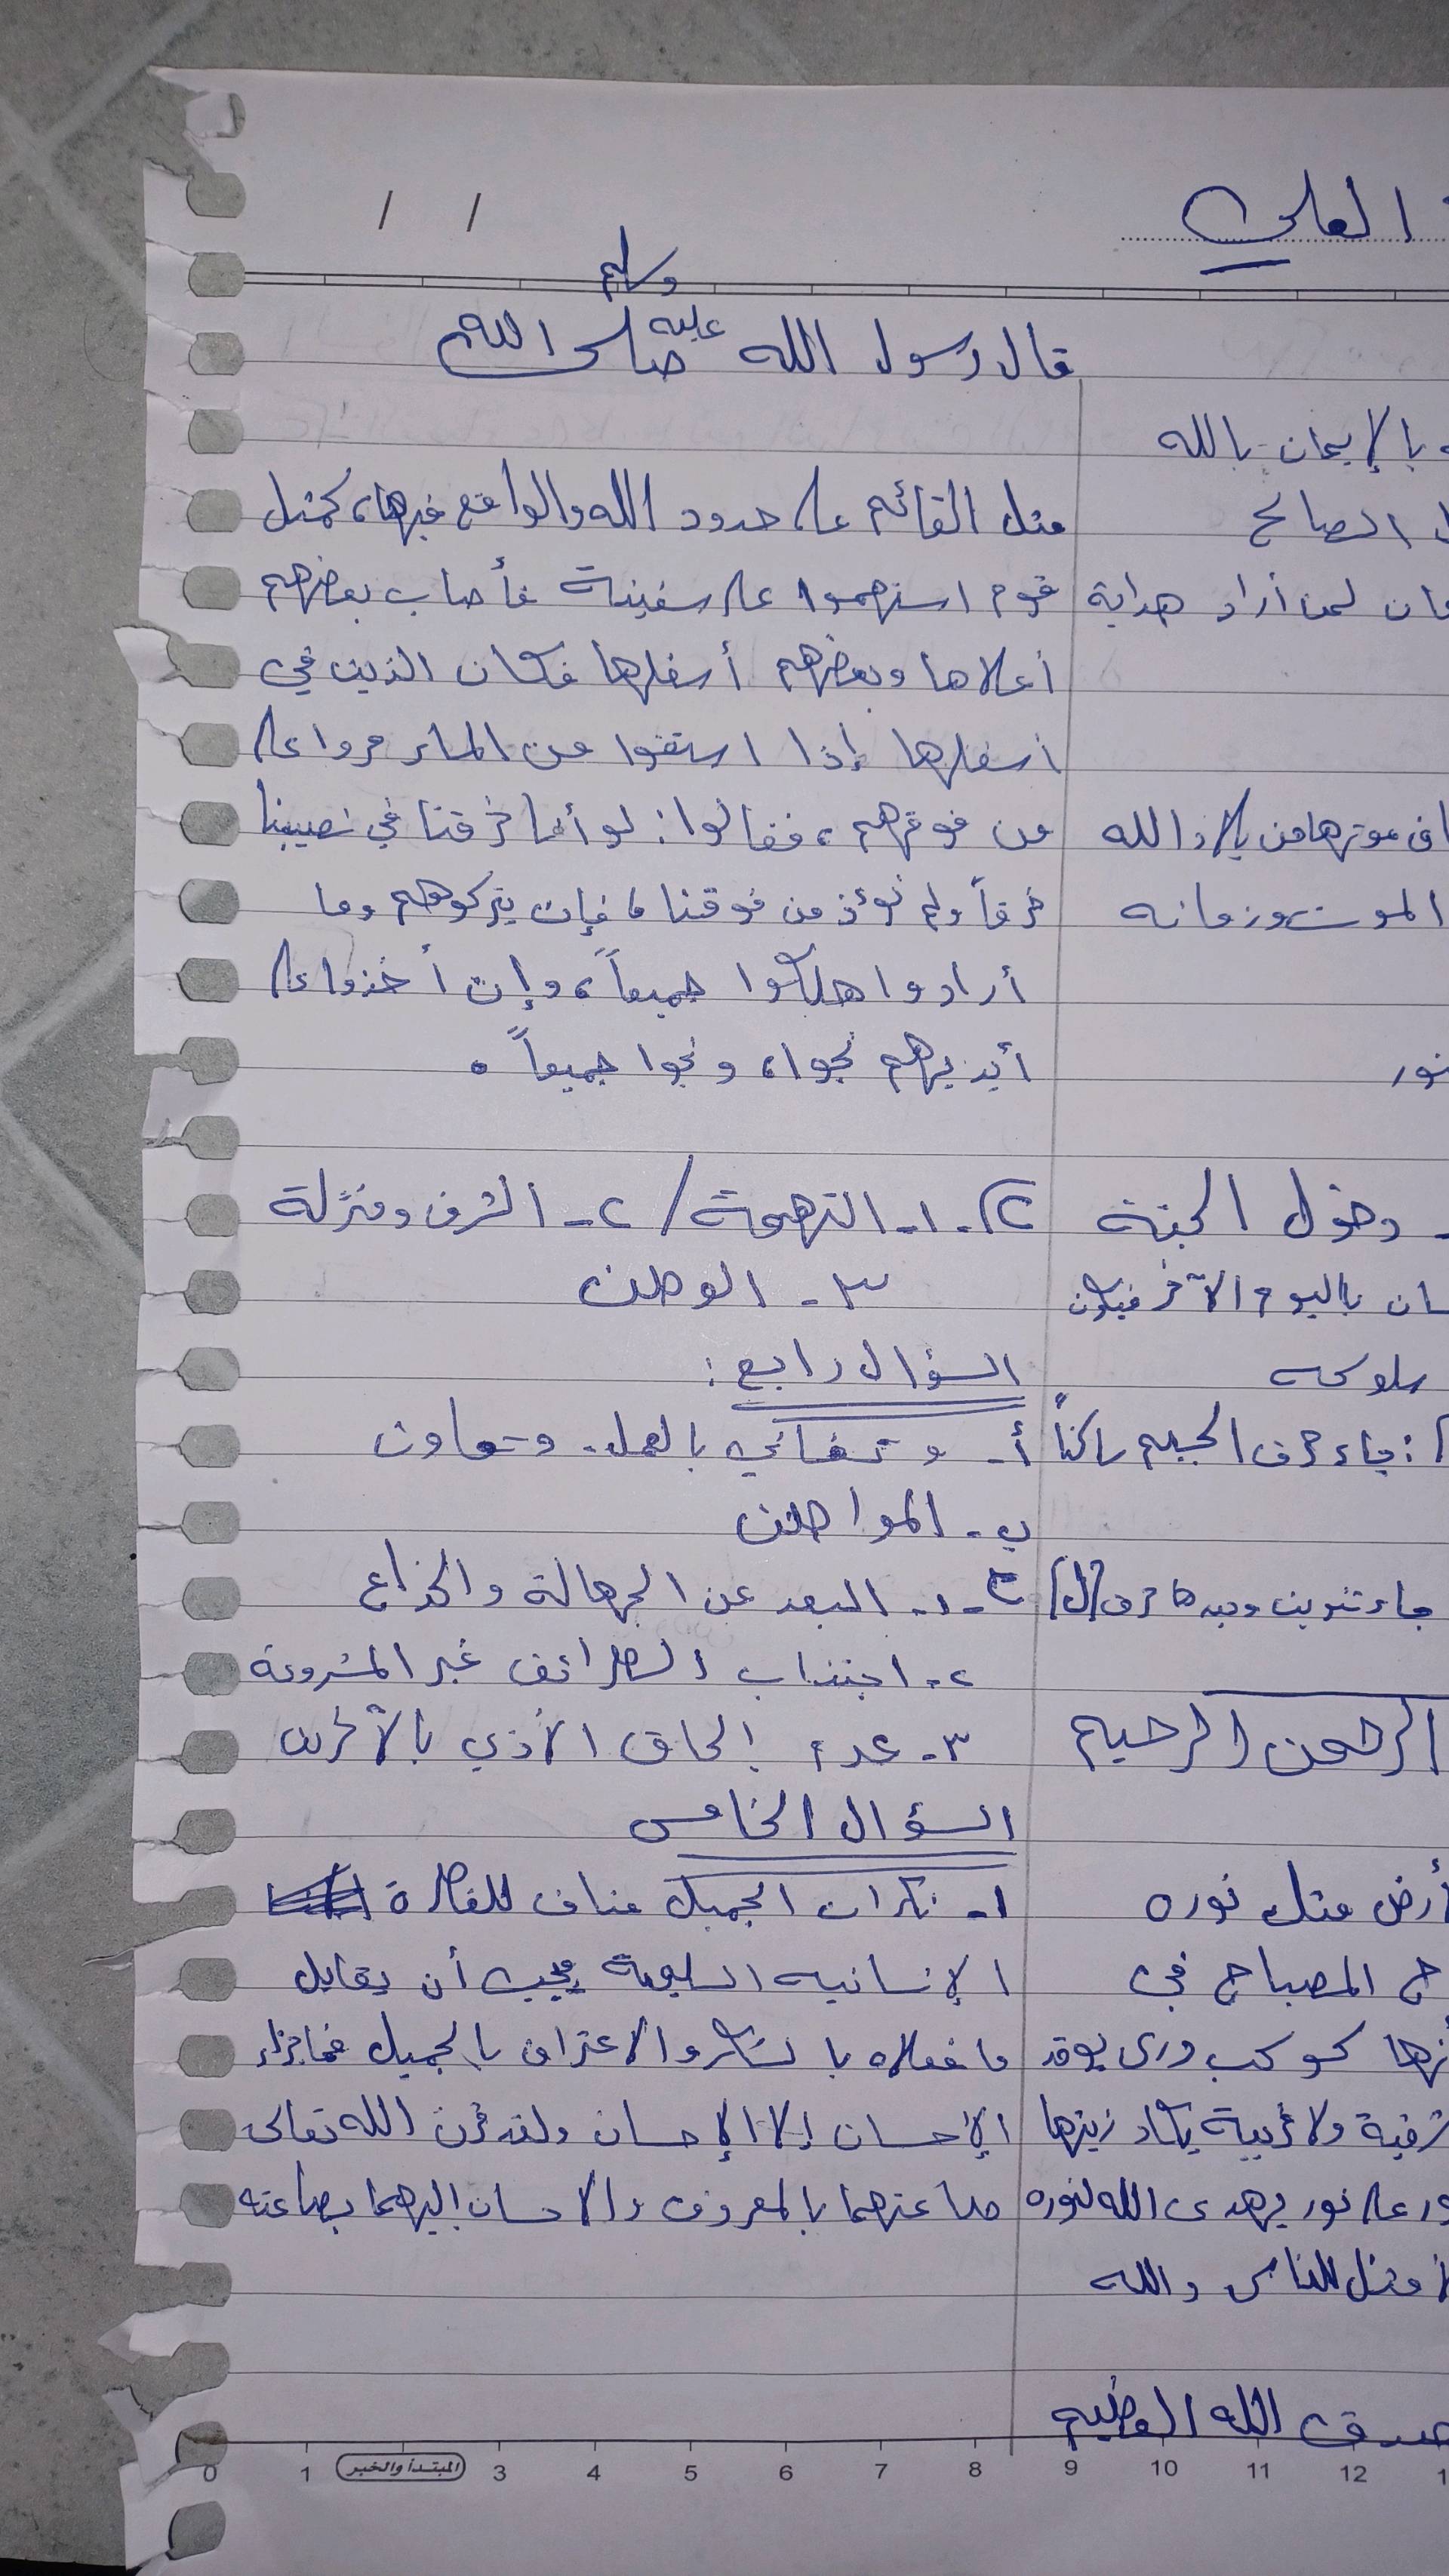 العلي
/ /
وسلم
قال رسول الله عليه صلى الله
بالإيمان بالله
مثل القائم على حدود الله والواقع فيها، كمثل
الصالح
قوم استهموا على سفينة فأصاب بعضهم
لمن أراد هداية
أعلاها وبعضهم أسفلها فكان الذين في
أسفلها إذا استقوا من الماء مروا على
من فوقهم، فقالوا: لو أنا خرقنا في نصيبنا
الله
خرقاً ولم نؤذ من فوقنا، فإن يتركوهم وما
الموت وزمانه
أرادوا هلكوا جميعاً، وإن أخذوا على
أيديهم نجوا، ونجوا جميعاً.
نور
دخول الجنة
ج. ١- التهمة / ٢- الشرف ومنزلة
باليوم الآخر فيكون
٣- الوطن
سلوكه
السؤال رابع:
جاء حرف الجيم ساكناً
أ- وتفاني بالعمل. وتعاون
ب- المواطن
جاء تنوين وبعدها حرف [ل]
ج- ١- البعد عن الجهالة والخداع
٢- اجتناب الطرائق غير المشروعة
الرحمن الرحيم
٣- عدم إلحاق الأذى بالآخرين
السؤال الخامس
أرض مثل نوره
١- نكران الجميل مناف للفطرة
المصباح في
الإنسانيه السليمة يجب أن يقابل
كوكب درى يوقد
ما فعلاه بالشكر والاعتراف بالجميل فما جزاء
ولا غربية يكاد زيتها
الإحسان إلا الإحسان ولقد قرن الله تعالى
على نور يهدى الله لنوره
طاعتهما بالمعروف والاحسان إليهما بطاعته
للناس والله
صدق الله العظيم
0 1 المبتدأ والخبر 3 4 5 6 7 8 9 10 11 12